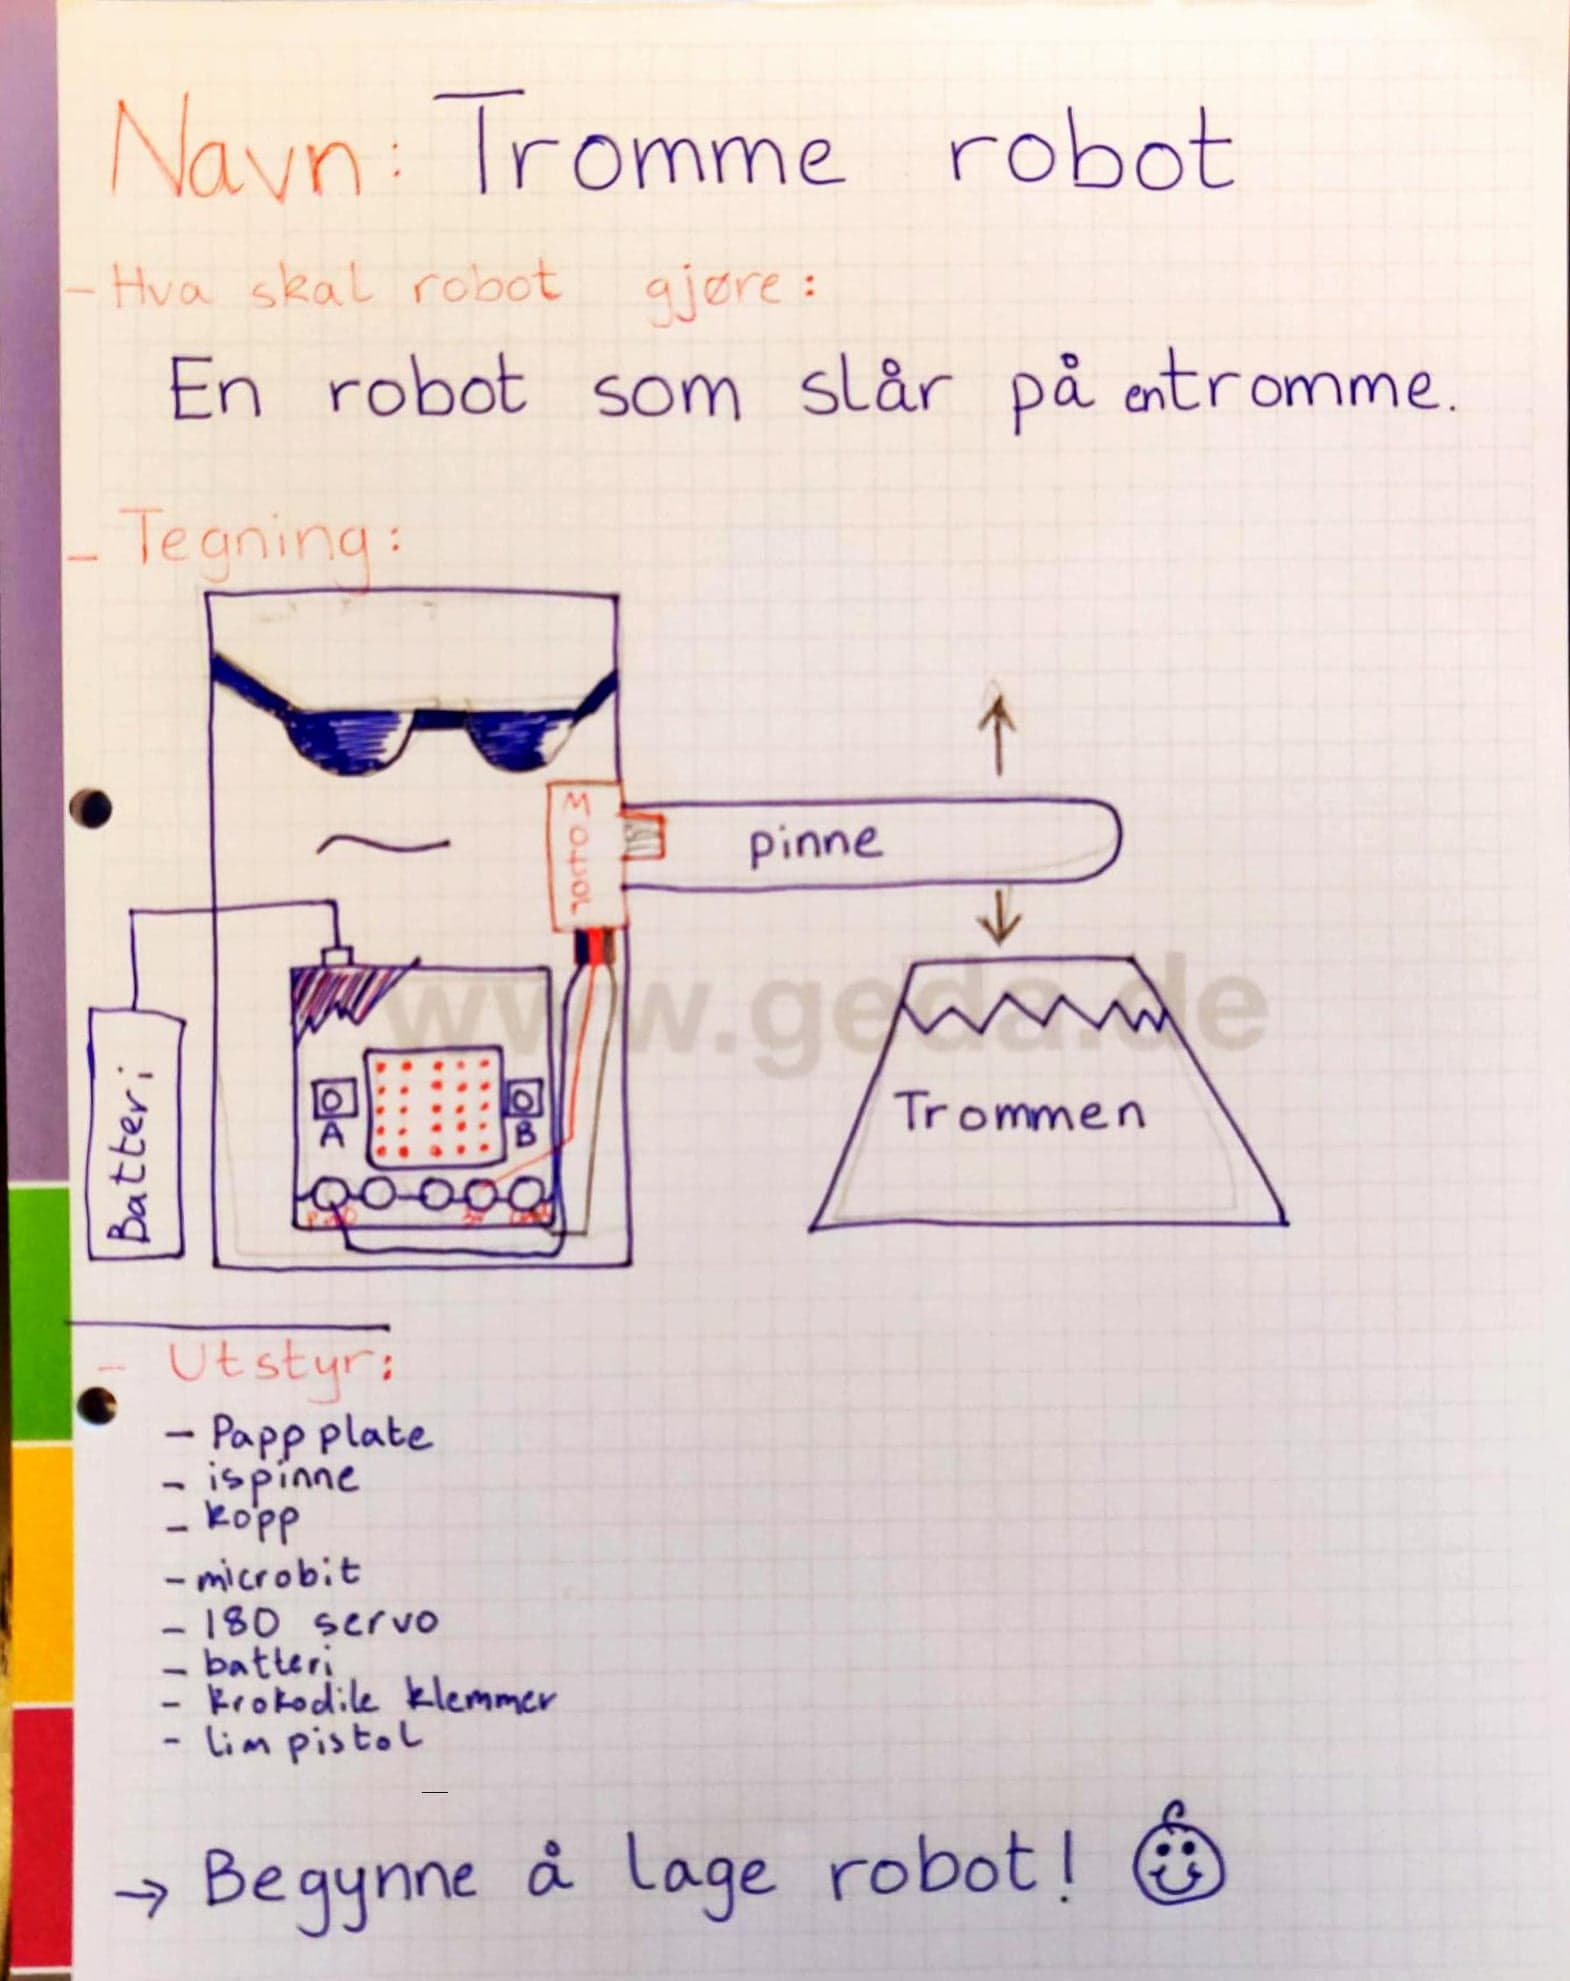 Navn: Tromme robot
- Hva skal robot gjøre:
En robot som slår på en tromme.
- Tegning:
Motor
pinne
www.geda.de
Batteri
A
B
Trommen
- Utstyr:
- Papp plate
- ispinne
- kopp
- microbit
- 180 servo
- batteri
- krokodile klemmer
- lim pistol
→ Begynne å lage robot!